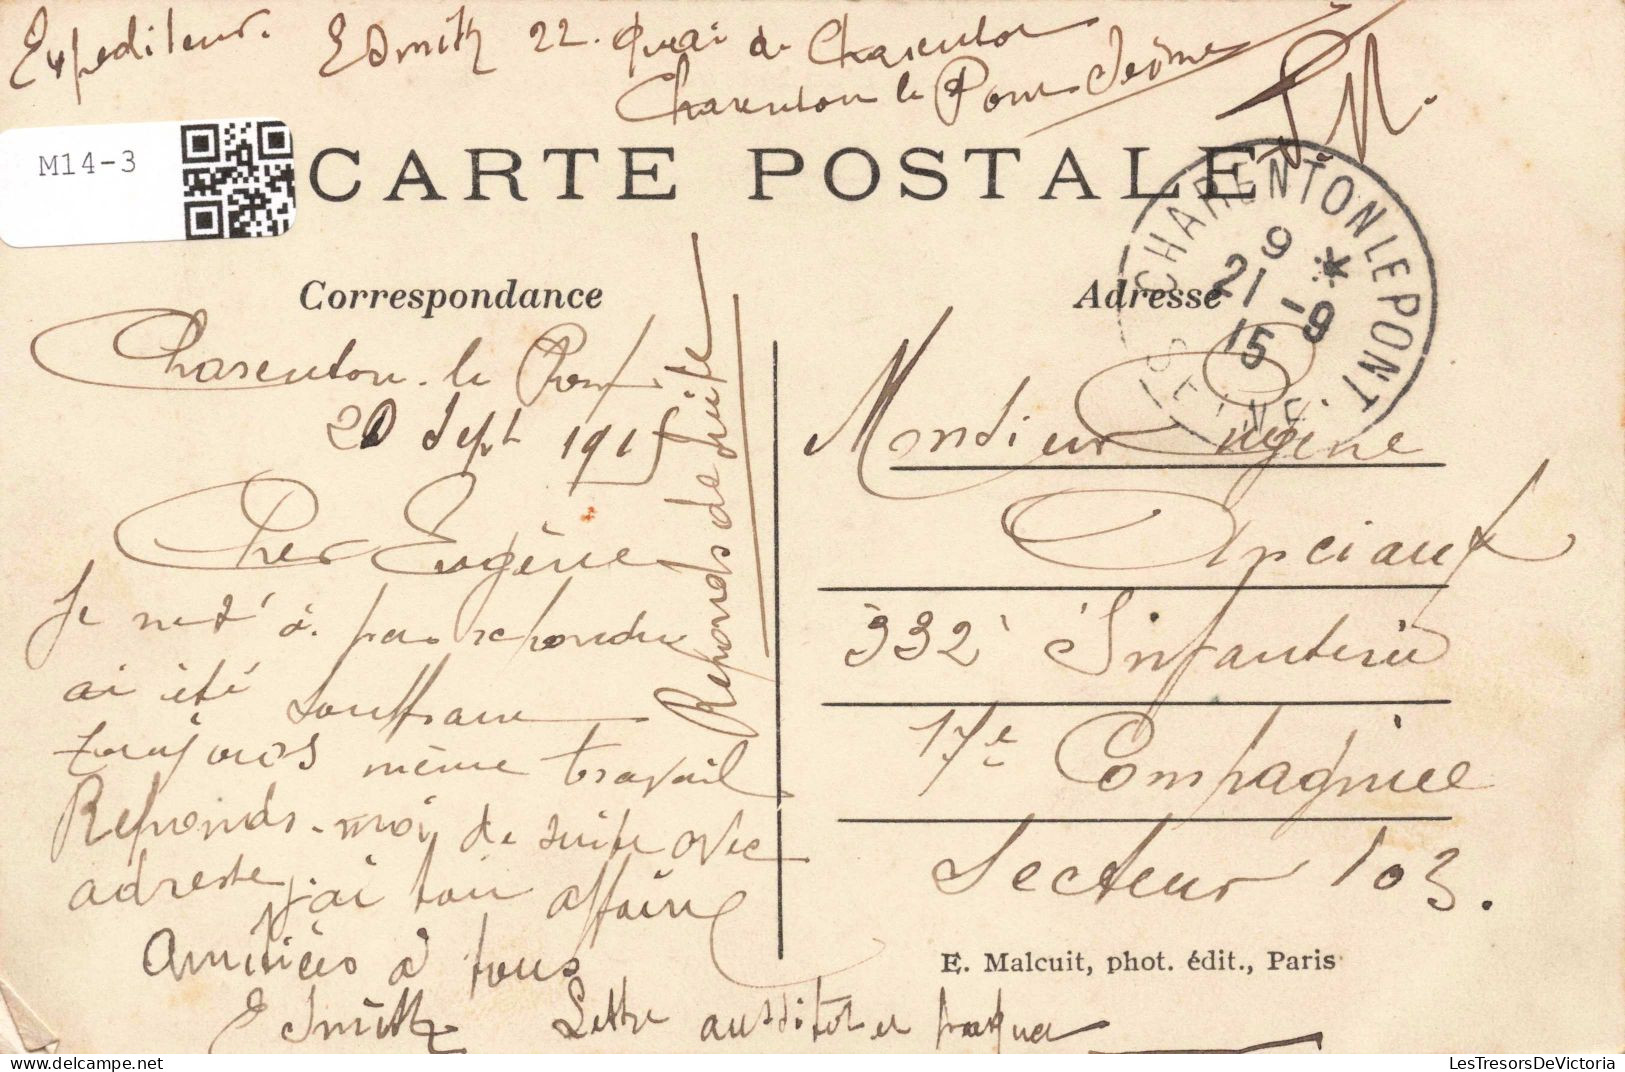 Expediteur. E Smith 22. Quai de Charenton
Charenton le Pont Seine
M14-3
CARTE POSTALE
CHARENTON LE PONT
9 *
21 -9
15
SEINE
Correspondance
Adresse
Charenton-le Pont
20 Sept 1915
Cher Eugène
Je ne t'ai pas repondu
ai été souffrant
toujours même travail
Reponds-moi de suite avec
adresse. j'ai ton affaire
Amitiées à tous
E Smith Lettre aussitot et paquet
Reponds de suite
Monsieur Eugène
Apciaux
332e Infanterie
17e Compagniee
Secteur 103.
E. Malcuit, phot. édit., Paris
LesTresorsDeVictoria